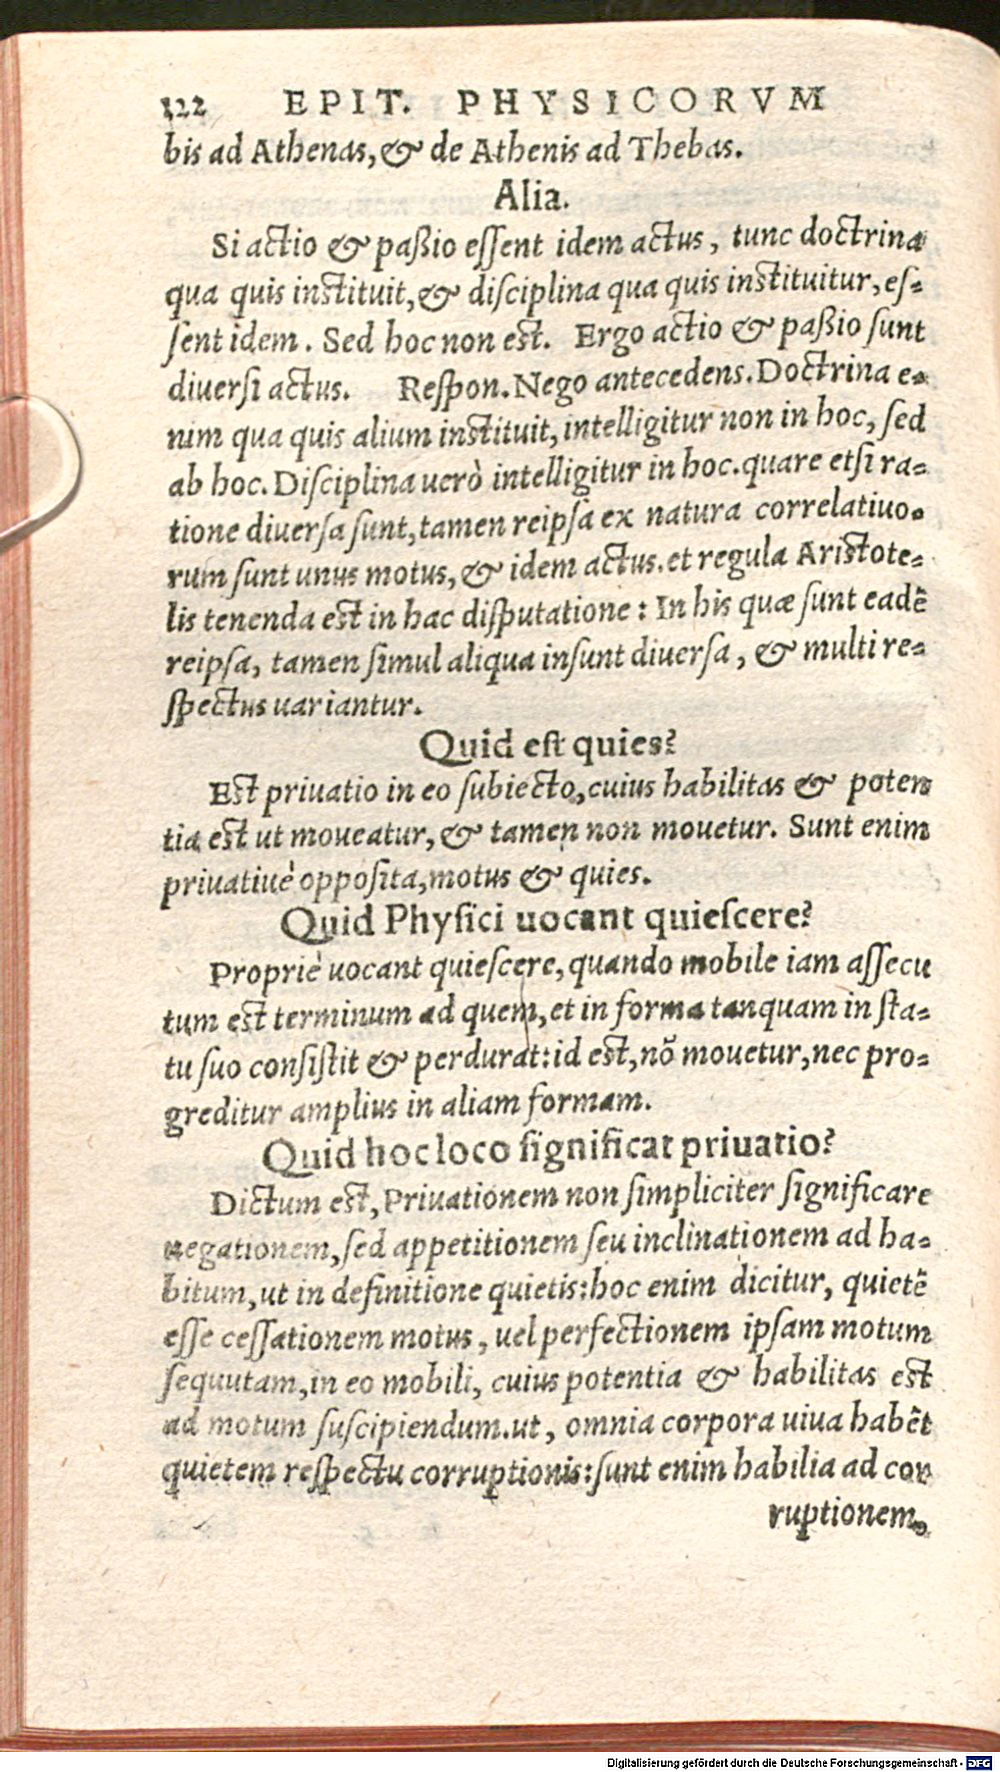 122 EPIT. PHYSICORVM
bis ad Athenas, & de Athenis ad Thebas.
Alia.
Si actio & paßio eſſent idem actus, tunc doctrina
qua quis instituit, & diſciplina qua quis instituitur, eſ-
ſent idem. Sed hoc non est. Ergo actio & paßio ſunt
diuerſi actus. Reſpon. Nego antecedens. Doctrina e-
nim qua quis alium instituit, intelligitur non in hoc, ſed
ab hoc. Diſciplina uerò intelligitur in hoc. quare etſi ra-
tione diuerſa ſunt, tamen reipſa ex natura correlatiuo-
rum ſunt unus motus, & idem actus. et regula Aristote-
lis tenenda est in hac diſputatione: In his quæ ſunt eadē
reipſa, tamen ſimul aliqua inſunt diuerſa, & multi re-
ſpectus uariantur.
Quid eſt quies?
Est priuatio in eo ſubiecto, cuius habilitas & poten
tia est ut moueatur, & tamen non mouetur. Sunt enim
priuatiuè oppoſita, motus & quies.
Quid Phyſici uocant quieſcere?
Propriè uocant quieſcere, quando mobile iam aſſecu
tum est terminum ad quem, et in forma tanquam in ſta-
tu ſuo conſiſtit & perdurat: id est, nō mouetur, nec pro-
greditur amplius in aliam formam.
Quid hoc loco ſignificat priuatio?
Dictum est, Priuationem non ſimpliciter ſignificare
negationem, ſed appetitionem ſeu inclinationem ad ha-
bitum, ut in definitione quietis: hoc enim dicitur, quietē
eſſe ceſſationem motus, uel perfectionem ipſam motum
ſequutam, in eo mobili, cuius potentia & habilitas est
ad motum ſuſcipiendum. ut, omnia corpora uiua habēt
quietem reſpectu corruptionis: ſunt enim habilia ad cor
ruptionem.
Digitalisierung gefördert durch die Deutsche Forschungsgemeinschaft - DFG